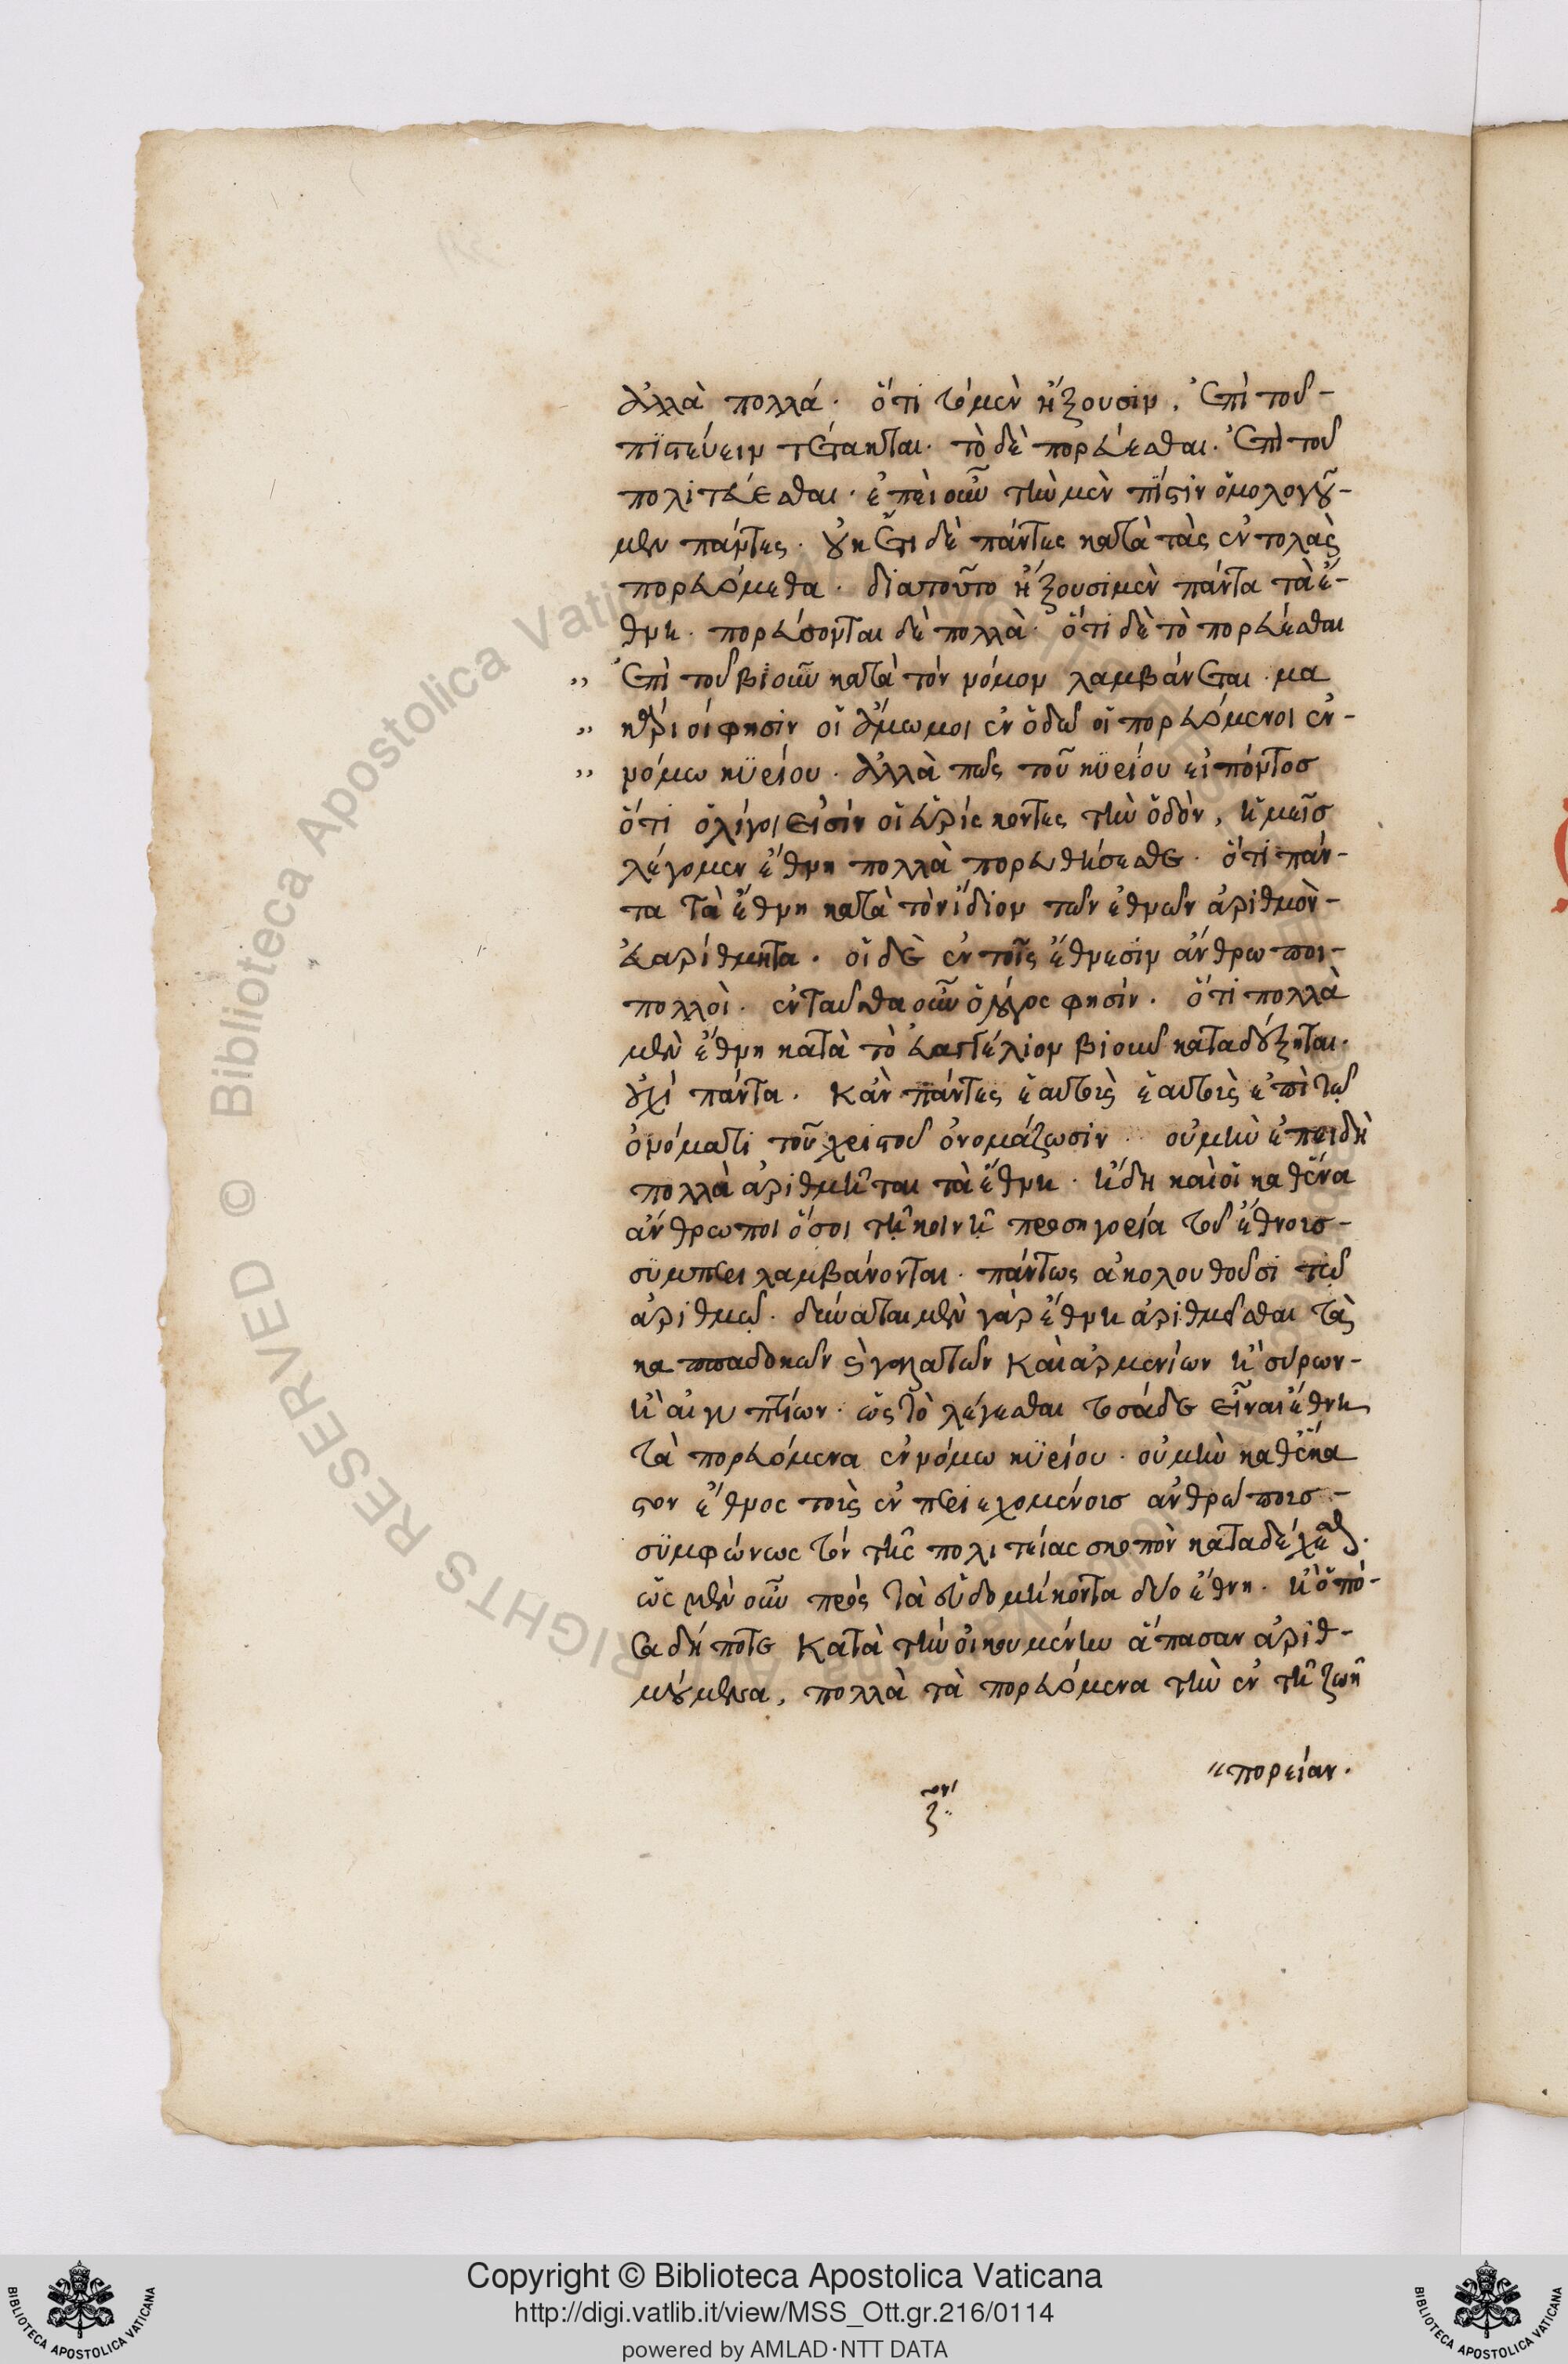 ἀλλὰ πολλά. ὅτι τὸ μὲν ἥξουσιν, ἐπὶ τοῦ-
πιστεύειν τέτακται. τὸ δὲ πορεύεσθαι. ἐπὶ τοῦ
πολιτεύεσθαι. ἐπεὶ οὖν τὴν μὲν πίστιν ὁμολογοῦ-
μεν πάντες. οὐκέτι δὲ πάντες κατὰ τὰς ἐντολὰς
πορευόμεθα. διατοῦτο ἥξουσι μὲν πάντα τὰ ἔ-
θνη. πορεύσονται δὲ πολλά. ὅτι δὲ τὸ πορεύεσθαι
" ἐπὶ τοῦ βιοῦν κατὰ τὸν νόμον λαμβάνεται. μα
" κάριοι φησὶν οἱ ἄμωμοι ἐν ὁδῶ οἱ πορευόμενοι ἐν-
" νόμω κυρίου. ἀλλὰ πῶς τοῦ κυρίου εἰπόντος
ὅτι ὀλίγοι εἰσὶν οἱ εὑρίσκοντες τὴν ὁδὸν, ἡμεῖς
λέγομεν ἔθνη πολλὰ πορευθήσεσθε. ὅτι πάν-
τα τὰ ἔθνη κατὰ τὸν ἴδιον τῶν ἐθνῶν ἀριθμὸν-
εὐαρίθμητα. οἱ δὲ ἐν τοῖς ἔθνεσιν ἄνθρωποι-
πολλοὶ. ἐνταῦθα οὖν ὁ λόγος φησὶν. ὅτι πολλὰ
μὲν ἔθνη κατὰ τὸ εὐαγγέλιον βιοῦν καταδέξηται.
οὐχὶ πάντα. κἂν πάντες ἑαυτοὺς ἑαυτοὺς ἐπὶ τῷ
ὀνόματι τοῦ χριστοῦ ὀνομάζωσιν οὐ μὴν ἐπειδὴ
πολλὰ ἀριθμῆται τὰ ἔθνη. ἤδη καὶ οἱ καθένα
ἄνθρωποι ὅσοι τῇ κοινῇ προσηγορία τοῦ ἔθνους-
συμπεριλαμβάνονται. πάντως ἀκολουθοῦσι τῷ
ἀριθμῷ. δύναται μὲν γὰρ ἔθνη ἀριθμεῖσθαι τὰ
καππαδοκῶν καὶ γαλατῶν καὶ ἀρμενίων καὶ σύρων-
καὶ αἰγυπτίων. ὡς τὸ λέγεσθαι τοσάδε εἶναι ἔθνη
τὰ πορευόμενα ἐν νόμω κυρίου. οὐ μὴν καθ' ἕκα
στον ἔθνος τοῖς ἐν περιεχομένοις ἀνθρώποις-
συμφώνως τὸν τῆς πολιτείας σκοπὸν καταδέχεσθαι.
ὡς μὲν οὖν πρὸς τὰ ἑβδομήκοντα δύο ἔθνη. καὶ ὁπό-
σα δήποτε κατὰ τὴν οἰκουμένην ἅπασαν ἀριθ-
μούμενα, πολλὰ τὰ πορευόμενα τὴν ἐν τῇ ζωῇ
πορείαν.
Copyright © Biblioteca Apostolica Vaticana
http://digi.vatlib.it/view/MSS_Ott.gr.216/0114
powered by AMLAD·NTT DATA